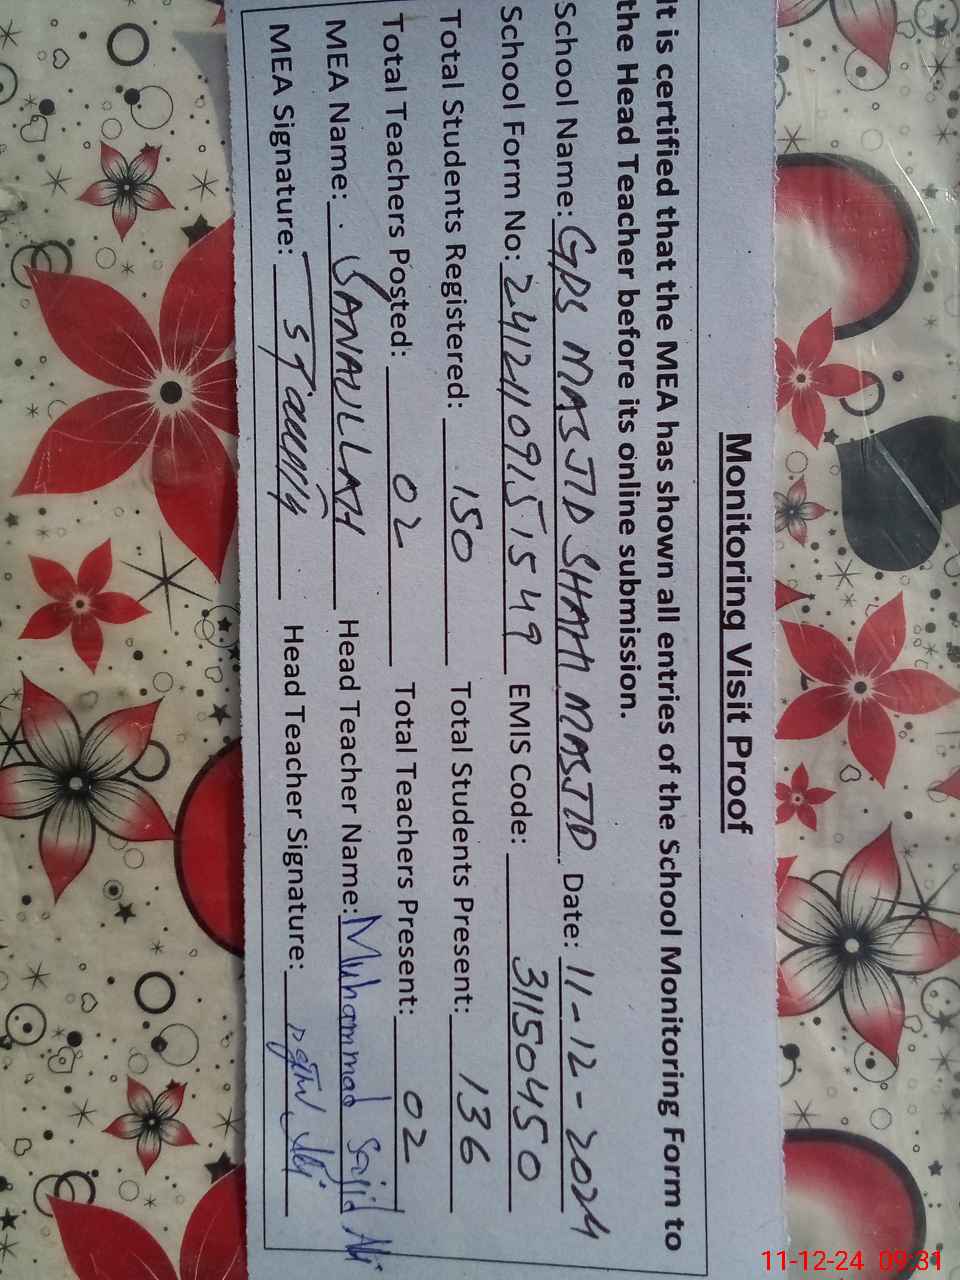 Monitoring Visit Proof
It is certified that the MEA has shown all entries of the School Monitoring Form to
the Head Teacher before its online submission.
School Name: GPS MASJID SHAHI MASJID Date: 11-12-2024
School Form No: 241211091571549 EMIS Code: 31150450
Total Students Registered: 150 Total Students Present: 136
Total Teachers Posted: 02 Total Teachers Present: 02
MEA Name: SANAULLAH Head Teacher Name: Muhammad Sajid Ali
MEA Signature: Head Teacher Signature:
11-12-24 09:31